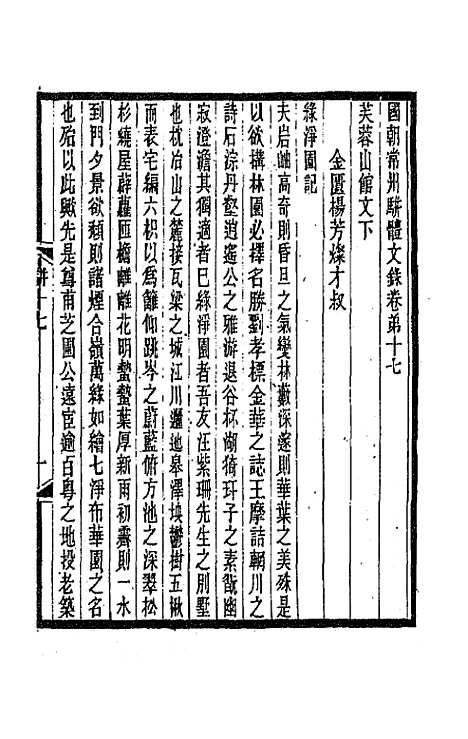 國朝常州駢體文錄卷弟十七
芙蓉山館文下
金匱楊芳燦才叔
綠淨園記
夫岩岫高奇則昏旦之氣變林藪深邃則華葉之美殊是
以欲構林園必擇名勝劉孝標金華之誌王摩詰輞川之
詩石淙丹壑逍遙公之雅游退谷杯湖猗玗子之素翫幽
寂澄澹其獨適者巳綠淨園者吾友汪紫珊先生之別墅
也枕冶山之麓接瓦梁之城江川邐迆皋澤坱鬱樹五楸
而表宅編六枳以為籬仰眺岑之蔚藍俯方池之深翠松
杉繞屋薜蘿匝檐離離花明蟄蟄葉厚新雨初霽則一水
到門夕景欲頹則諸煙合嶺萬綠如繪七淨布華園之名
也殆以此歟先是尊甫芝圃公遠宦逾百粵之地投老築
駢十七
一